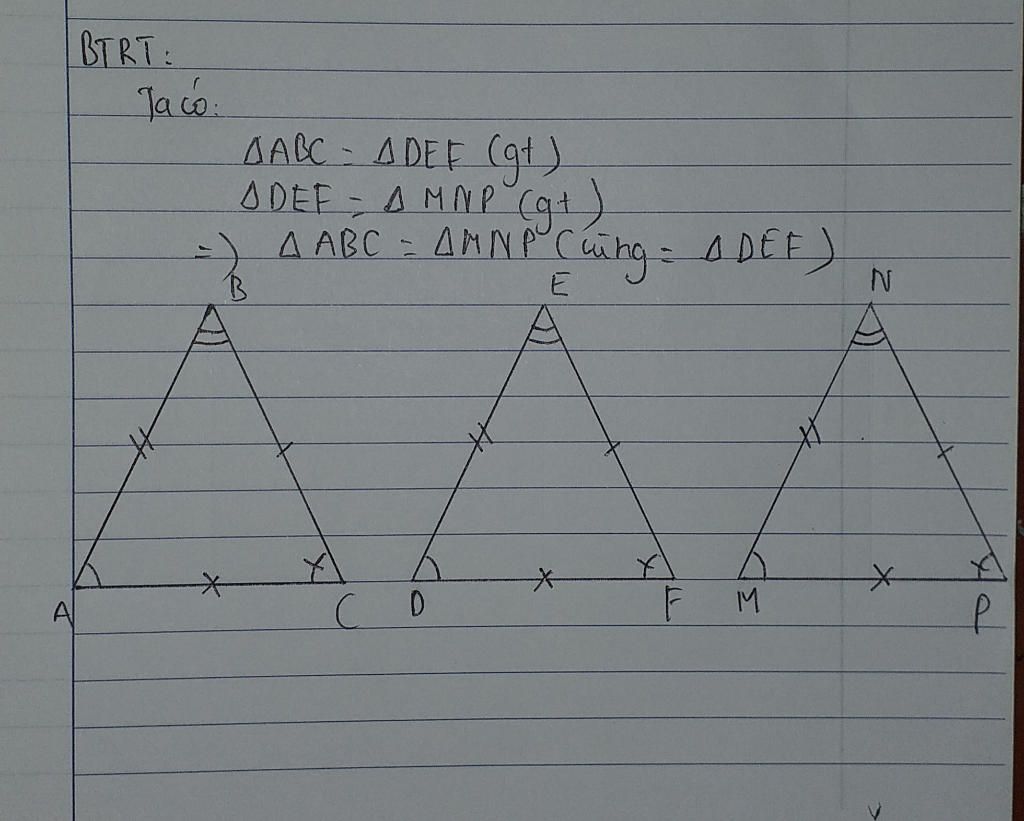 BTRT:
Ta có:
ΔABC = ΔDEF (gt)
ΔDEF = ΔMNP (gt)
=) ΔABC = ΔMNP (cùng = ΔDEF)
B E N
A C D F M P